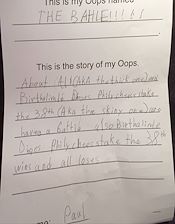 This is my Oops named
THE BAHLE!!!!!
This is the story of my Oops.
About A11 (AKA the thick one) and
Birthalinid Oboes Philycheesestake
the 38th (Aka the skiny one) are
having a battle also Birthalinde
Oboes Philycheesestake the 38th
wins and all loses
Paul